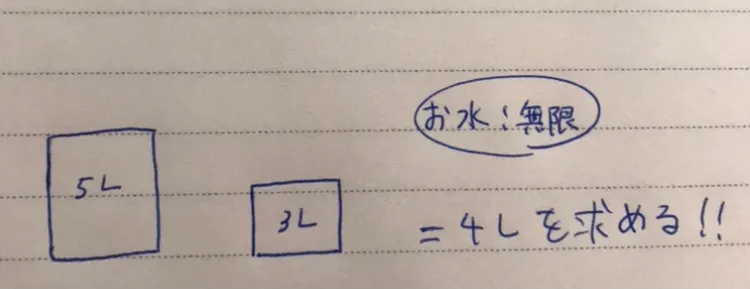 お水：無限
5L
3L
=4Lを求める!!